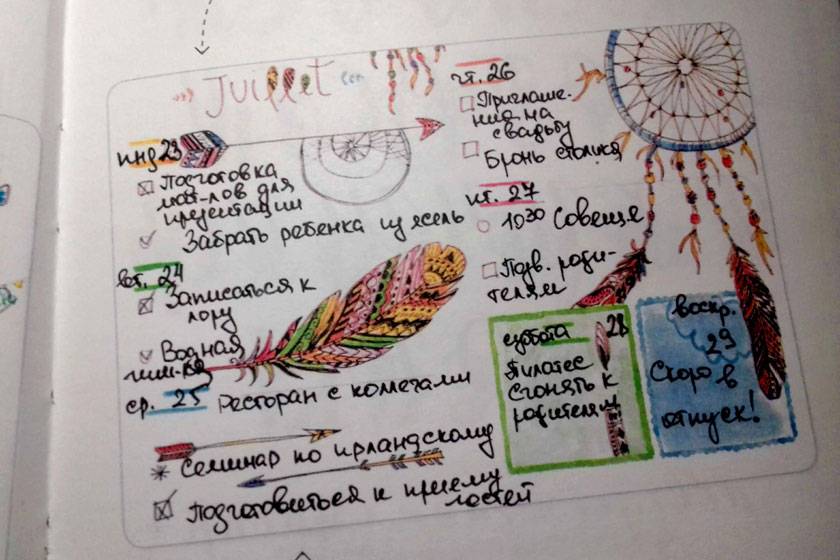 Juillet
пнд 23
Подготовка
мат-лов для
презентации
Забрать ребенка из ясель
вт. 24
Записаться к
лору
Водная
гимн-ка
ср. 25 Ресторан с коллегами
Семинар по ирландскому
Подготовиться к приему
гостей
чт. 26
Приглаше-
ния на
свадьбу
Бронь столика
пт. 27
10 30 Совеща
Подв. роди-
телям
суббота 28
Пилатес
Сгонять к
родителям
воскр.
29
Скоро в
отпуск!